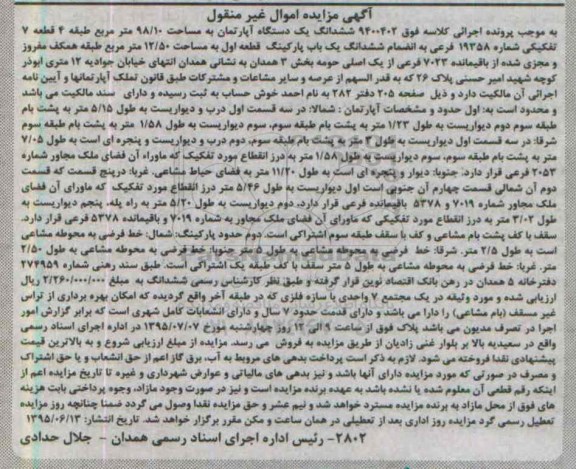 آگهی مزایده اموال غیر منقول
به موجب پرونده اجرائی کلاسه فوق ۹۴۰۰۴۰۲ ششدانگ یک دستگاه آپارتمان به مساحت ۹۸/۱۰ متر مربع طبقه ۴ قطعه ۷
تفکیکی شماره ۱۹۳۵۸ فرعی به انضمام ششدانگ یک باب پارکینگ قطعه اول به مساحت ۱۲/۵۰ متر مربع طبقه همکف مفروز
و مجزی شده از باقیمانده ۷۰۲۳ فرعی از یک اصلی حومه بخش ۳ همدان به نشانی همدان انتهای خیابان جوادیه ۱۲ متری ابوذر
کوچه شهید امیر حسنی پلاک ۲۶ که به قدر السهم از عرصه و سایر مشاعات و مشترکات طبق قانون تملک آپارتمانها و آیین نامه
اجرائی آن مالکیت دارد و ذیل صفحه ۲۰۵ دفتر ۲۸۲ به نام احمد خوش حساب به ثبت رسیده و دارای سند مالکیت می باشد
و محدود است به: اول حدود و مشخصات آپارتمان : شمالا: در سه قسمت اول درب و دیواریست به طول ۵/۱۵ متر به پشت بام
طبقه سوم دوم دیواریست به طول ۱/۲۳ متر به پشت بام طبقه سوم، سوم دیواریست به طول ۱/۵۸ متر به پشت بام طبقه سوم
شرقا: در سه قسمت اول دیواریست به طول ۲ متر به پشت بام طبقه سوم، دوم درب و دیواریست و پنجره ای است به طول ۷/۰۵
متر به پشت بام طبقه سوم، سوم دیواریست به طول ۱/۵۸ متر به درز انقطاع مورد تفکیک که ماوراء آن فضای ملک مجاور شماره
۲۰۵۳ فرعی قرار دارد: جنوبا: دیوار و پنجره ای است به طول ۱۱/۲۰ متر به فضای حیاط مشاعی. غربا: درپنج قسمت که قسمت
دوم آن شمالی قسمت چهارم آن جنوبی است اول دیواریست به طول ۵/۴۶ متر درز انقطاع مورد تفکیک که ماورای آن فضای
ملک مجاور شماره ۷۰۱۹ و ۵۳۷۸ باقیمانده فرعی قرار دارد، دوم دیواریست به طول ۵/۲۰ متر به راه پله پنجم دیواریست به
طول ۳/۰۲ متر به درز انقطاع مورد تفکیکی که ماورای آن فضای ملک مجاور به شماره ۷۰۱۹ و باقیمانده ۵۳۷۸ فرعی قرار دارد.
سقف با کف پشت بام مشاعی و کف با سقف طبقه سوم اشتراکی است. دوم حدود پارکینگ: شمال: خط فرضی به محوطه مشاعی
است به طول ۲/۵ متر. شرقا: خط فرضی به محوطه مشاعی به طول ۵ متر جنوبا: خط فرضی به محوطه مشاعی به طول ۲/۵۰
متر. غربا: خط فرضی به محوطه مشاعی به طول ۵ متر سقف با کف طبقه یک اشتراکی است. طبق سند رهنی شماره ۲۷۴۹۵۹
دفترخانه ۵ همدان در رهن بانک اقتصاد نوین قرار گرفته و طبق نظر کارشناس رسمی ششدانگ به مبلغ ۲/۲۶۰/۰۰۰/۰۰۰ ریال
ارزیابی شده و مورد وثیقه در یک مجتمع ۷ واحدی با سازه فلزی که در طبقه آخر واقع گردیده که امکان بهره برداری از تراس
غیر مسقف (بام مشاعی) را دارا می باشد و دارای قدمت حدود ۷ سال و دارای انشعابات کامل شهری است که برابر گزارش امور
اجرا در تصرف مدیون می باشد پلاک فوق از ساعت ۹ الی ۱۲ روز چهارشنبه مورخ ۱۳۹۵/۰۷/۰۷ در اداره اجرای اسناد رسمی
واقع در سعیدیه بالا بر بلوار غنی زادیان از طریق مزایده به فروش می رسد. مزایده از مبلغ ارزیابی شروع و به بالاترین قیمت
پیشنهادی نقدا فروخته می شود. لازم به ذکر است پرداخت بدهی های مربوط به آب، برق گاز اعم از حق انشعاب و یا حق اشتراک
و مصرف در صورتی که مورد مزایده دارای آنها باشد و نیز بدهی های مالیاتی و عوارض شهرداری و غیره تا تاریخ مزایده اعم از
اینکه رقم قطعی آن معلوم شده یا نشده باشد به عهده برنده مزایده است و نیز در صورت وجود مازاد، وجوه پرداختی بابت هزینه
های فوق از محل مازاد به برنده مزایده مسترد خواهد شد و نیم عشر و حق مزایده نقدا وصول می گردد ضمنا چنانچه روز مزایده
تعطیل رسمی گردد مزایده روز اداری بعد از تعطیلی در همان ساعت و مکان مقرر برگزار خواهد شد. تاریخ انتشار: ۱۳۹۵/۰۶/۱۳
۲۸۰۲- رئیس اداره اجرای اسناد رسمی همدان - جلال حدادی